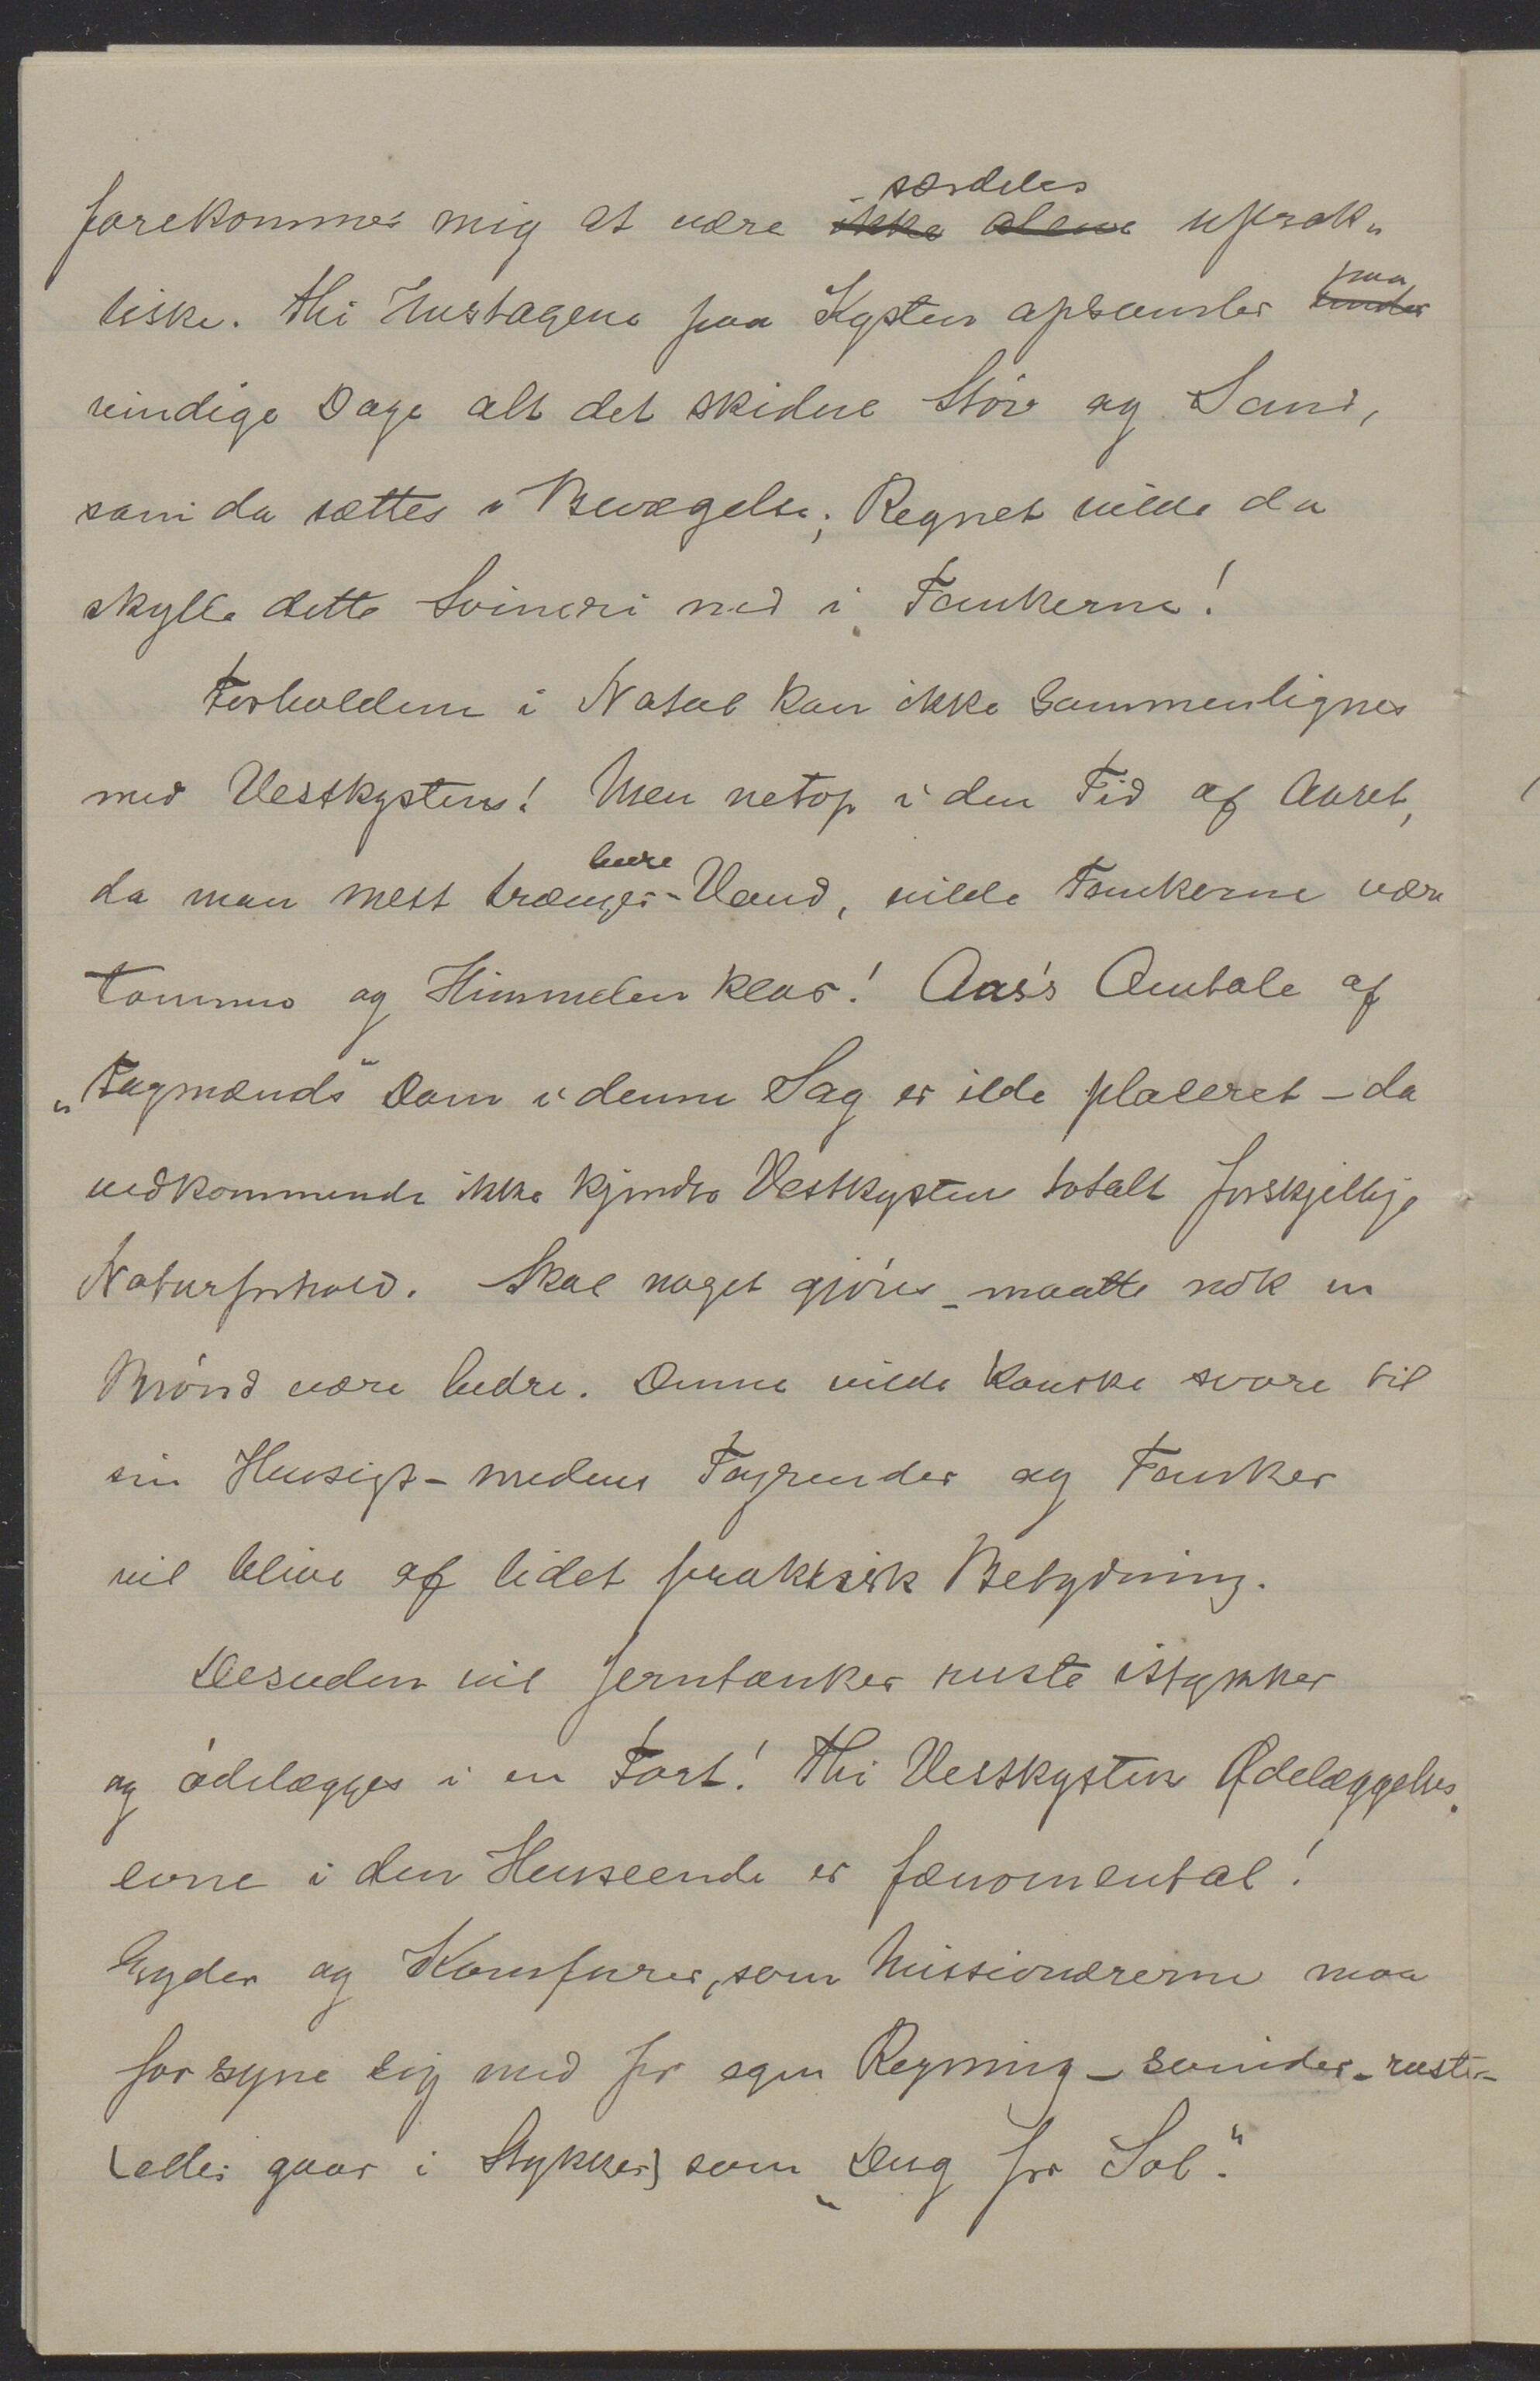 forekommer mig at være ikke alene særdeles uprak„
tiske. Thi Hustagene paa Kysten opsamler under paa
vindige Dage alt det skidne Støv og Sand,
som da sættes i Bevægelse; Regnet vilde da
skylle dette Svineri ned i Tankerne!
Forholdene i Natal kan ikke sammenlignes
med Vestkystens! Men netop i den Tid af Aaret,
da man mest trænger bare Vand, vilde Tankerne være
tomme og Himmelen klar! Aas's Omtale af
„Fagmænds" Dom i denne Sag er ilde placeret – da
vedkommende ikke kjender Vestkysten totalt forskjellige
Naturforhold. Skal noget gjöres – maatte nok en
Brönd være bedre. Denne vilde kanske svare til
sin Hensigt – medens Tagrender og Tanker
vil blive af lidet praktisk Betydning.
Desuden vil Jerntanker ruste istykker
og ödelægges i en Fart! Thi Vestkysten Ødelæggelses„
evne i den Henseende er fænomental!
Gryder og Komfurer, som Missionærerne maa
forsyne sig med for egen Regning – svinder – ruster –
(eller gaar i Stykker) som „Dug for Sol".